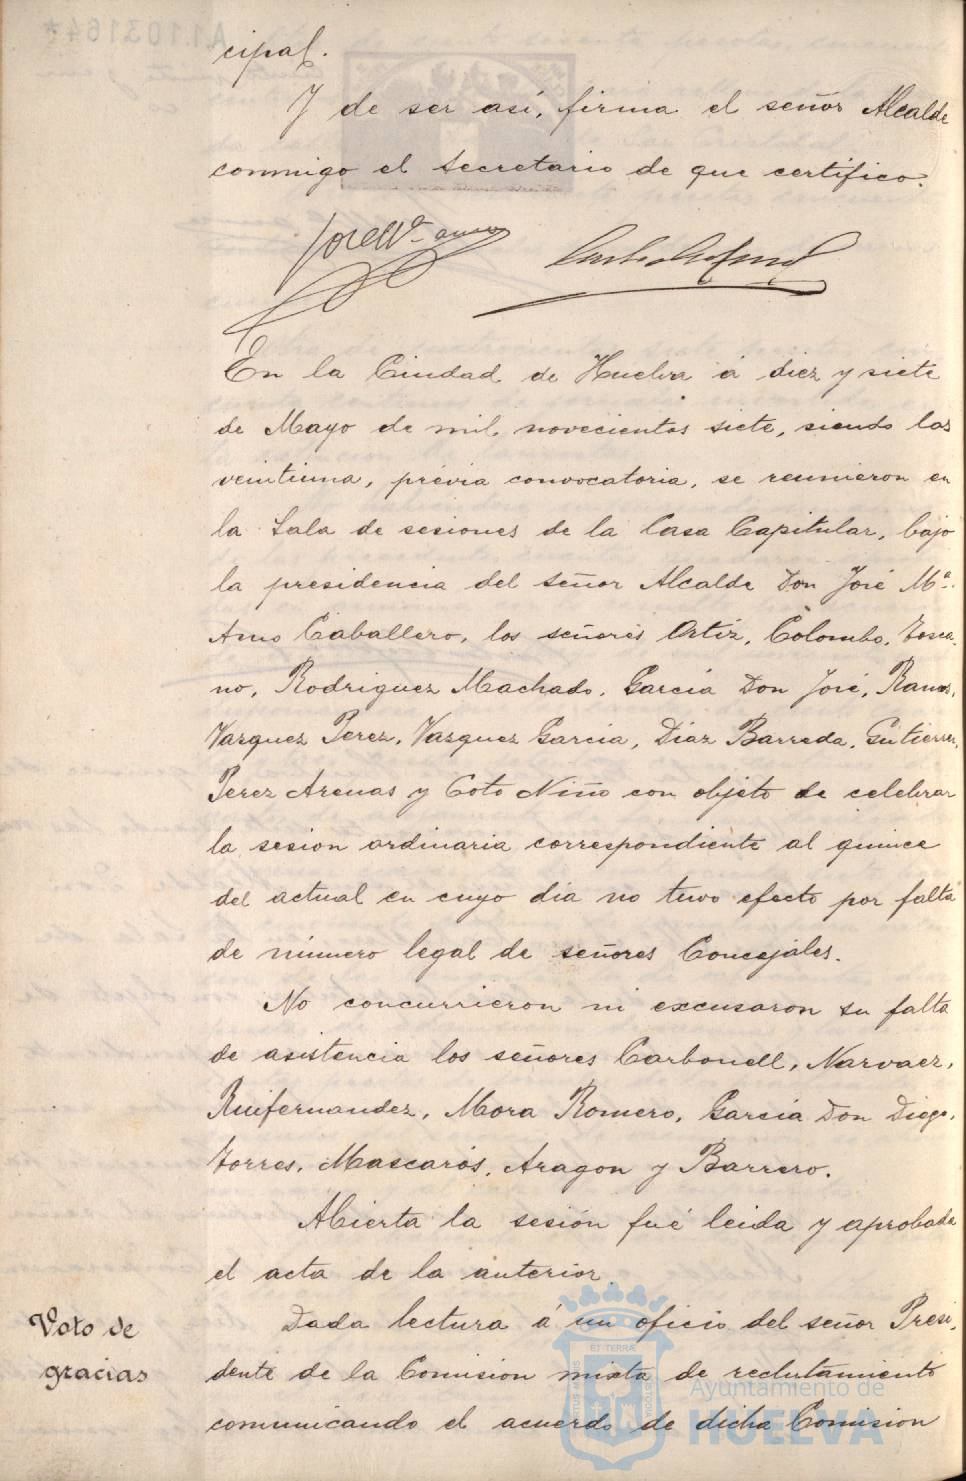 cipal.
Y de ser así, firma el señor Alcalde
conmigo el Secretario de que certifico.
José Mª Amo
En la Ciudad de Huelva á diez y siete
de Mayo de mil novecientos siete, siendo las
veintiuna, prévia convocatoria, se reunieron en
la Sala de sesiones de la Casa Capitular, bajo
la presidencia del señor Alcalde Don José Mª
Amo Caballero, los señores Ortiz, Colombo, Tosca-
no, Rodriguez Machado, Garcia Don José, Ramos,
Vazquez Perez, Vazquez Garcia, Diaz Barreda, Gutierrez,
Perez Arenas y Coto Niño con objeto de celebrar
la sesion ordinaria correspondiente al quince
del actual en cuyo dia no tuvo efecto por falta
de número legal de señores Concejales.
No concurrieron ni excusaron su falta
de asistencia los señores Carbonell, Narvaez,
Ruifernandez, Mora Romero, Garcia Don Diego,
Torres, Mascarós, Aragon y Barrero.
Abierta la sesión fué leida y aprobada
el acta de la anterior.
Voto de
gracias
Dada lectura á un oficio del señor Presi-
dente de la Comision mixta de reclutamiento
comunicando el acuerdo de dicha Comision
Ayuntamiento de
HUELVA
A1103164*